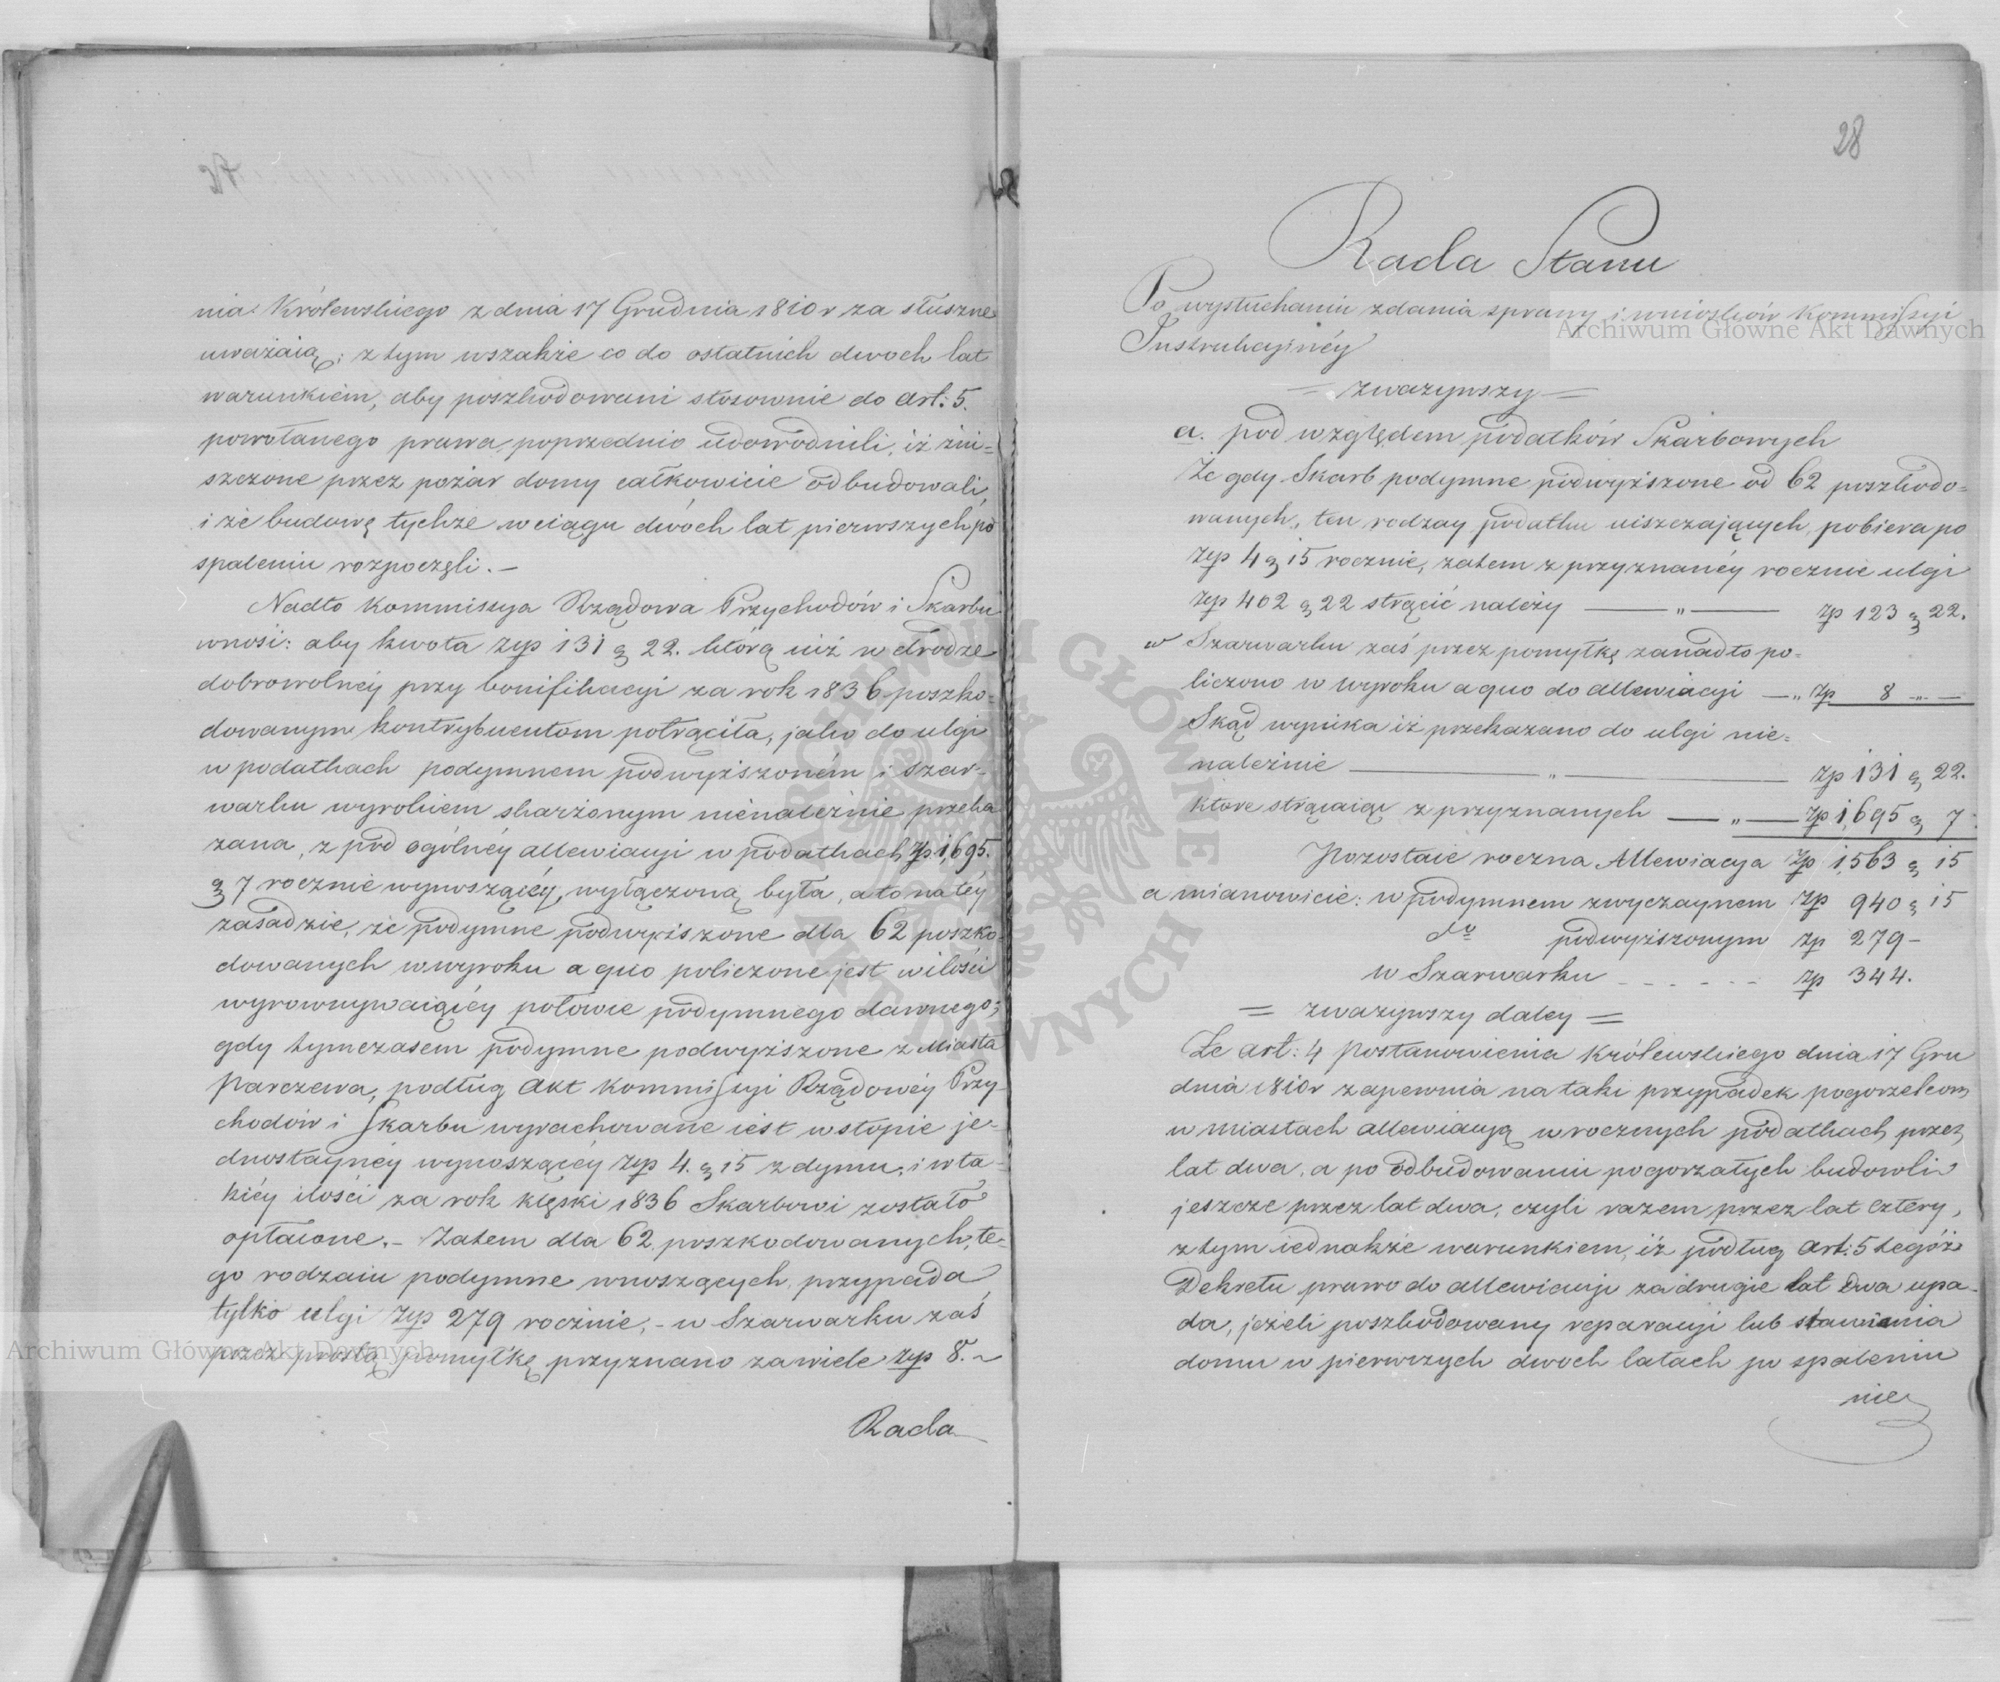 nia Królewskiego z dnia 17 Grudnia 1810 r za słuszne
uważaią; z tym wszakże co do ostatnich dwoch lat
warunkiem, aby poszkodowani stosownie do art: 5.
powołanego prawa, poprzednio udowodnili, iż zni=
szczone przez pożar domy całkowicie odbudowali,
i że budowę tychże w ciągu dwóch lat pierwszych po
spaleniu rozpoczęli. —
Nadto Kommissya Rządowa Przychodów i Skarbu
wnosi: aby kwota złp 131 g 22. którą iuż w drodze
dobrowolnéy przy bonifikacyi za rok 1836 poszko-
dowanym kontrybuentom potrąciła, jako do ulgi
w podatkach podymnem podwyższoném i szar-
warku wyrokiem skarżonym nienależnie przeka
zana, z pod ogólnéy allewiacyi w podatkach zp 1,695.
g 7 rocznie wynoszącéy, wyłączoną była, a to na téy
zasadzie, że podymne podwyższone dla 62 poszko-
dowanych w wyroku a quo policzone jest w ilości
wyrownywaiącéy połowie podymnego dawnego;
gdy tymczasem podymne podwyższone z Miasta
Parczewa, podług Akt Kommissyi Rządowéy Przy-
chodów i Skarbu wyrachowane iest w stopie je-
dnostaynéy wynoszącéy złp 4. g 15 z dymu, i w ta-
kiéy ilości za rok klęski 1836 Skarbowi zostało
opłacone. — Zatem dla 62 poszkodowanych, te-
go rodzaiu podymne wnoszących, przypada
tylko ulgi złp 279 rocznie, — w Szarwarku zaś
przez prostą pomyłkę przyznano za wiele złp 8. ~
Rada
28
Rada Stanu
Po wysłuchaniu zdania sprawy i wniosków Kommissyi
Instrukcyinéy
= zważywszy =
a. pod względem podatków Skarbowych
Że gdy Skarb podymne podwyższone od 62 poszkodo=
wanych, ten rodzay podatku uiszczających, pobiera po
złp 4 g 15 rocznie, zatem z przyznanéy rocznie ulgi
złp 402 g 22 strącić należy —— „ —— zp 123 g 22.
w Szarwarku zaś przez pomyłkę zanadto po=
liczono w wyroku a quo do allewiacyi — „ zp 8 „ —
Skąd wynika iż przekazano do ulgi nie=
należnie —— „ —— zp 131 g 22.
które strącaiąc z przyznanych — „ — zp 1,695 g 7.
Pozostaie roczna Allewiacya zp 1,563 g 15
a mianowicie: w podymnem zwyczaynem zp 940 g 15
do podwyższonym zp 279 —
w Szarwarku - - - - - - zp 344.
= zważywszy daley =
Że art: 4 Postanowienia Królewskiego dnia 17 Gru
dnia 1810 r zapewnia na taki przypadek pogorzelcom
w miastach allewiacyą w rocznych podatkach przez
lat dwa, a po odbudowaniu pogorzałych budowli
jeszcze przez lat dwa, czyli razem przez lat cztery,
z tym iednakże warunkiem, iż podług art: 5 tegóż
Dekretu prawo do allewiacyi za drugie lat dwa upa-
da, jeżeli poszkodowany reparacyi lub stawiania
domu w pierwszych dwoch latach po spaleniu
nie
Archiwum Główne Akt Dawnych
Archiwum Główne Akt Dawnych
ARCHIWUM GŁÓWNE AKT DAWNYCH